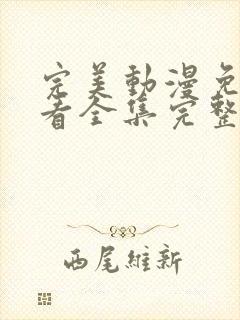 完美動漫免
看全集完整
西尾維新